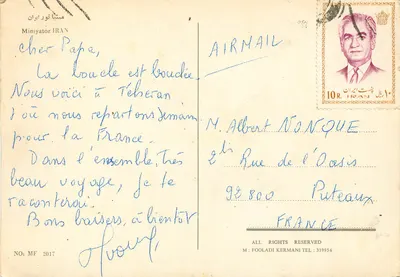 مینیاتور ایران
Miniyator IRAN
cher Papa,
La boucle est bouclée
Nous voici à Téhéran
d'où nous repartons demain
pour la France.
Dans l'ensemble, très
beau voyage, je te
raconterai.
Bons baisers, à bientôt
NO: MF 2017
AIRMAIL
10 R.
۱۰
M. Albert NONQUE
2 bis Rue de l'Oasis
92800 Puteaux
FRANCE
ALL RIGHTS RESERVED
M. FOOLADI KERMANI TEL: 319854